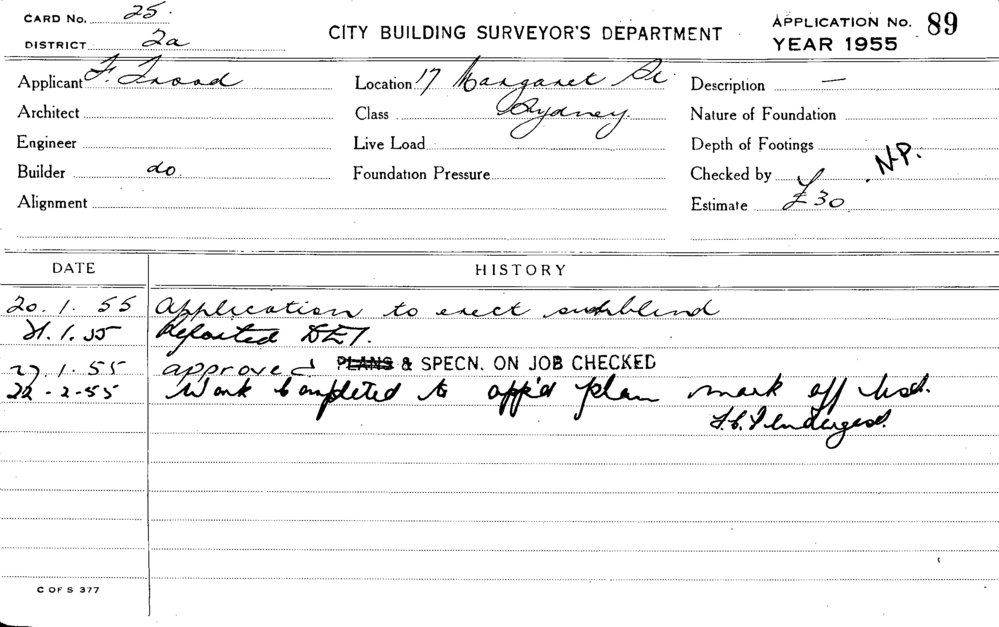 CARD No. 25.
DISTRICT 2a
CITY BUILDING SURVEYOR'S DEPARTMENT
APPLICATION No. 89
YEAR 1955
Applicant F. Trood
Location 17 Margaret St.
Description —
Architect
Class Sydney.
Nature of Foundation
Engineer
Live Load
Depth of Footings
Builder do.
Foundation Pressure
Checked by N.P.
Alignment
Estimate £30
DATE
HISTORY
20.1.55 Application to erect sunblind
21.1.55 Reported
27.1.55 approved PLANS & SPECN. ON JOB CHECKED
22-2-55 Work Completed to app'd plan mark off
C OF S 377